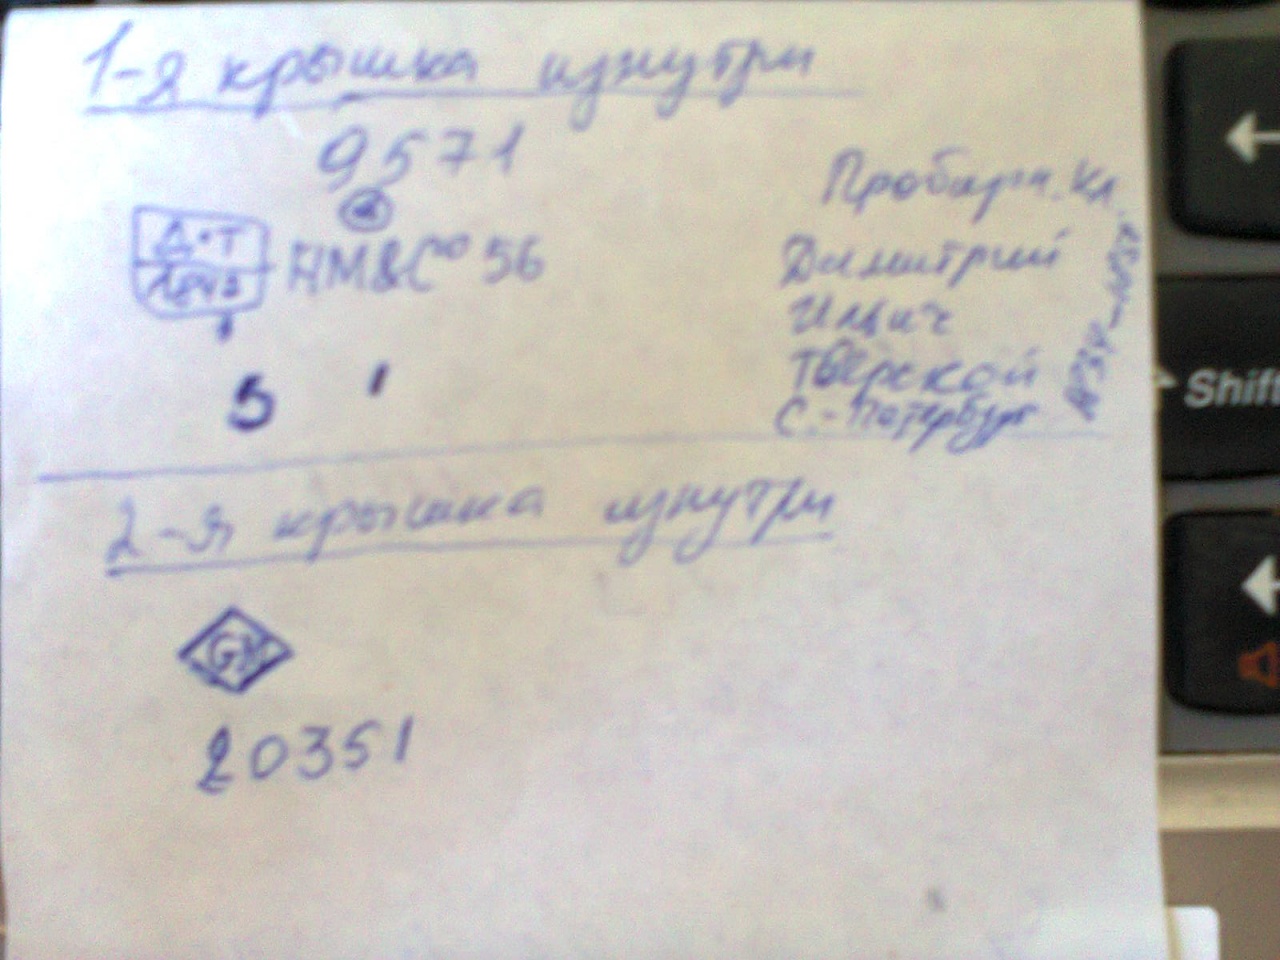 1-я крышка изнутри
9571
Д•Т
НМ&Cº 56
5 1
Пробирн. кл.
Димитрий
Ильич
Тверской
С.-Петербург
2-я крышка изнутри
20351
Shift